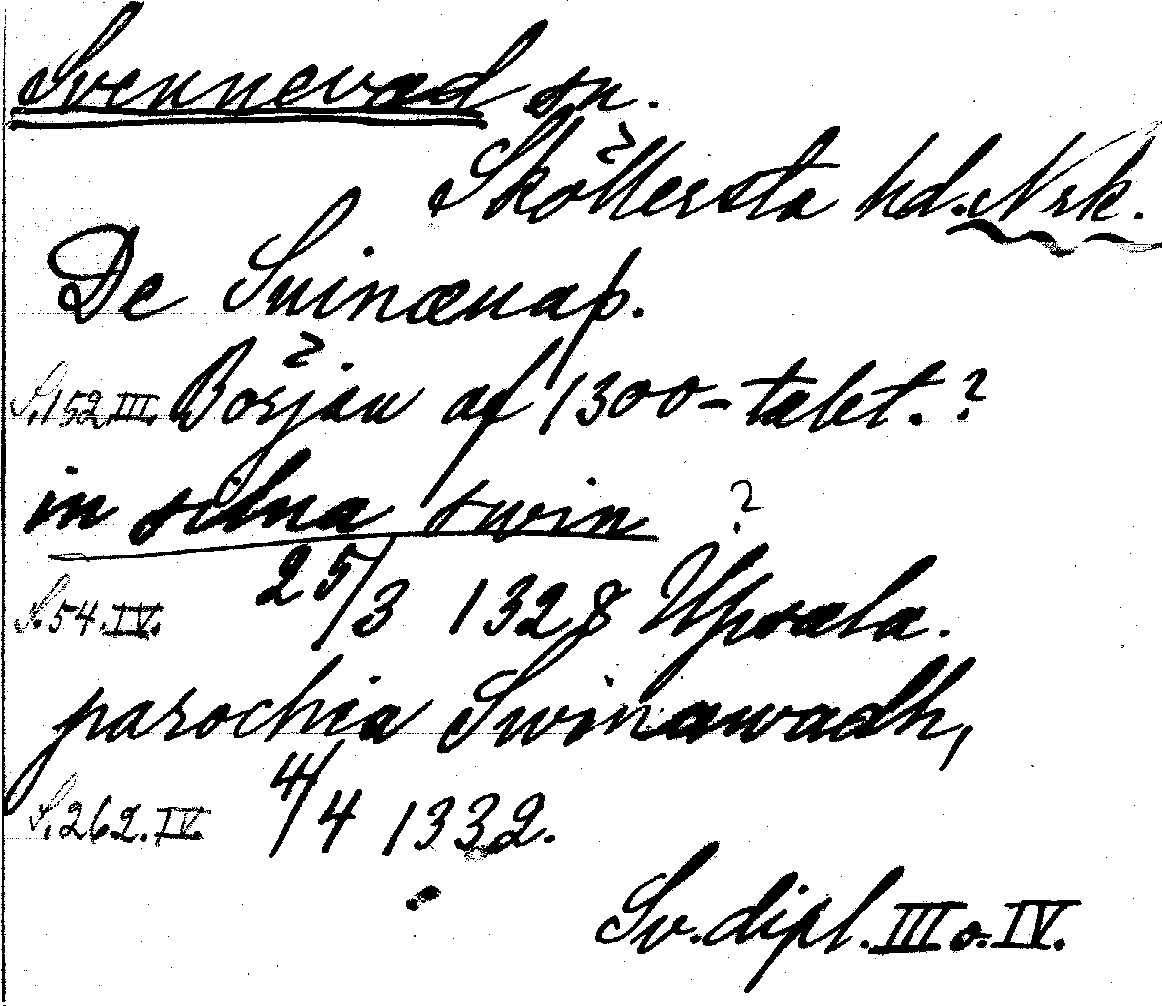 Svennevad sn.
Sköllersta hd. Nrk.
De Suinæuaþ.
S. 152 III. Början af 1300-talet.?
in silna swin ?
S. 54. IV. 25/3 1328 Upsala.
parochia Swinawadh,
S. 262. IV. 4/4 1332.
Sv. dipl. III o. IV.